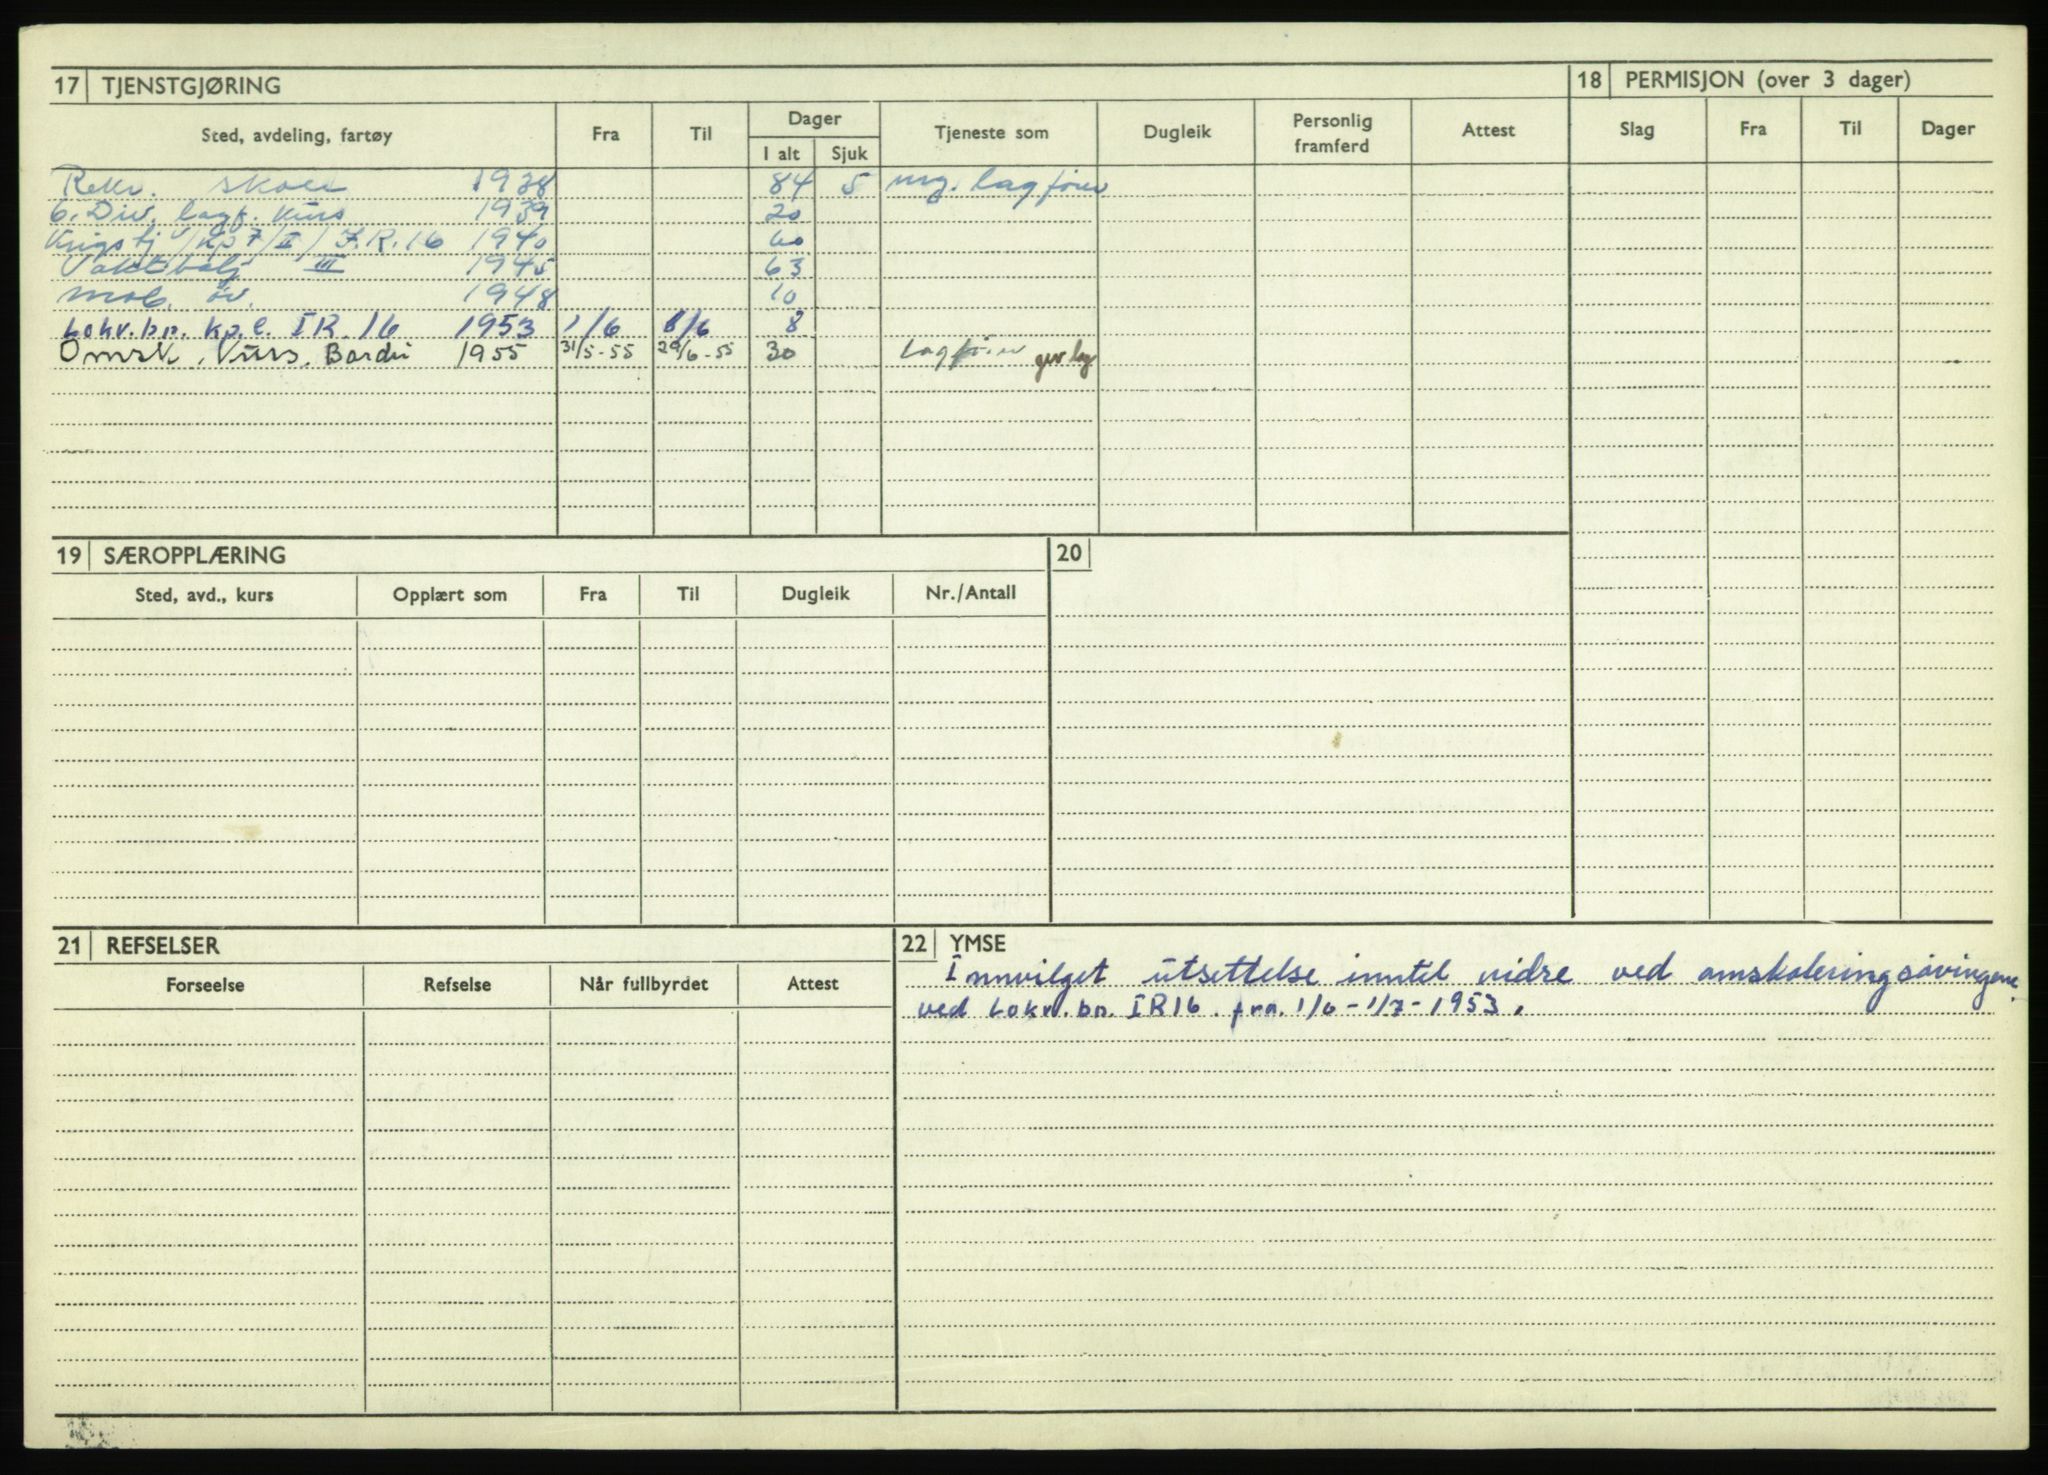 17 TJENSTGJØRING
Sted, avdeling, fartøy Fra Til Dager I alt Sjuk Tjeneste som Dugleik Personlig framferd Attest
Rekr. skole 1938 84 5 ung. lagfører
6. Div. lagf. kurs 1939 20
Krigstj /Kp 7/II/ I.R. 16 1940 60
Vaktbatj III 1945 63
Mob. öv. 1948 10
Lokv.bn. kp.l. IR. 16 1953 1/6 8/6 8
Omsk. kurs. Bardu 1955 31/5-55 29/6-55 30 Lagfører gev.lag
18 PERMISJON (over 3 dager)
Slag Fra Til Dager
19 SÆROPPLÆRING
Sted, avd., kurs Opplært som Fra Til Dugleik Nr./Antall
20
21 REFSELSER
Forseelse Refselse Når fullbyrdet Attest
22 YMSE
Innvilget utsettelse inntil vidre ved omskoleringsövingene
ved Lokv. bn. IR16. fra. 1/6-1/7-1953.